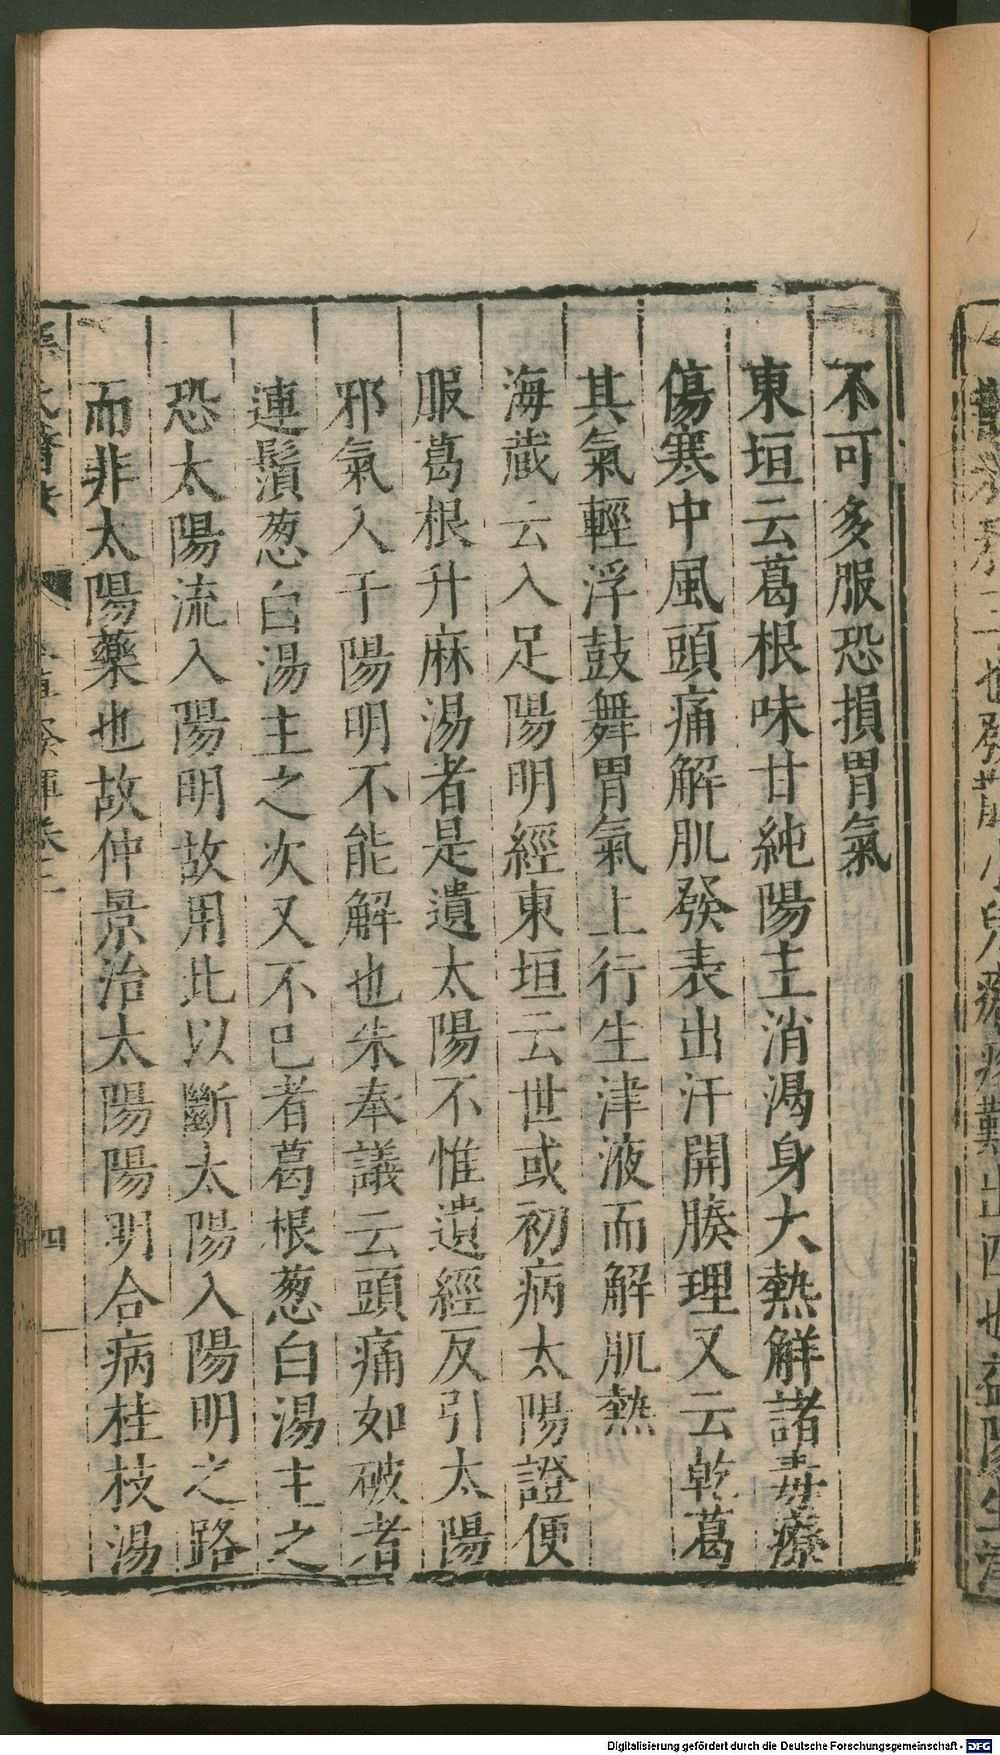 不可多服恐損胃氣
東垣云葛根味甘純陽主消渴身大熱解諸毒療
傷寒中風頭痛解肌發表出汗開腠理又云乾葛
其氣輕浮鼓舞胃氣上行生津液而解肌熱
海蔵云入足陽明經東垣云世或初病太陽證便
服葛根升麻湯者是遺太陽不惟遺經反引太陽
邪氣入于陽明不能解也朱奉議云頭痛如破者
連鬚葱白湯主之次又不已者葛根葱白湯主之
恐太陽流入陽明故用此以斷太陽入陽明之路
而非太陽藥也故仲景治太陽陽明合病桂枝湯
四
Digitalisierung gefördert durch die Deutsche Forschungsgemeinschaft - DFG